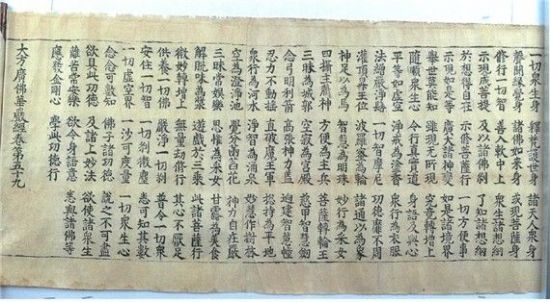 一切衆生身 諸天人衆身
聲聞緣覺身 諸佛如來身 或現菩薩身
脩行一切智 善入軟中上 衆生諸想網
示現成菩提 及以諸佛刹 了知諸想網
於想得自在 示脩菩薩行 一切方便事
示現如是等 廣大諸神變 如是諸境界
舉世莫能知 雖現無所現 究竟轉增上
隨順衆生心 令行真實道 身語及與心
平等如虛空 淨戒為塗香 衆行為衣服
法繒嚴淨髻 一切智摩尼 功德靡不周
灌頂昇王位 波羅蜜為輪 諸通以為象
神足以為馬 智慧為明珠 妙行為采女
四攝主藏神 方便為主兵 菩薩轉輪王
三昧為城郭 空寂為宮殿 慈甲智慧劒
念弓明利箭 高張神力蓋 迥建智慧幢
忍力不動搖 直破魔王軍 揔持為平地
衆行為河水 淨智為涌泉 妙慧作樹林
空為澄淨池 覺分菡萏花 神力自莊嚴
三昧常娛樂 思惟為采女 甘露為美食
解脫味為漿 遊戲於三乘 此諸菩薩行
微妙轉增上 無量劫脩行 其心不厭足
供養一切佛 嚴淨一切刹 普令一切衆
安住一切智 一切刹微塵 悉可知其數
一切虛空界 一沙可度量 一切衆生心
念念可數知 佛子諸功德 說之不可盡
欲具此功德 及諸上妙法 欲使諸衆生
離苦常安樂 欲令身語意 悉與諸佛等
應發金剛心 學此功德行
大方廣佛華嚴經卷第五十九